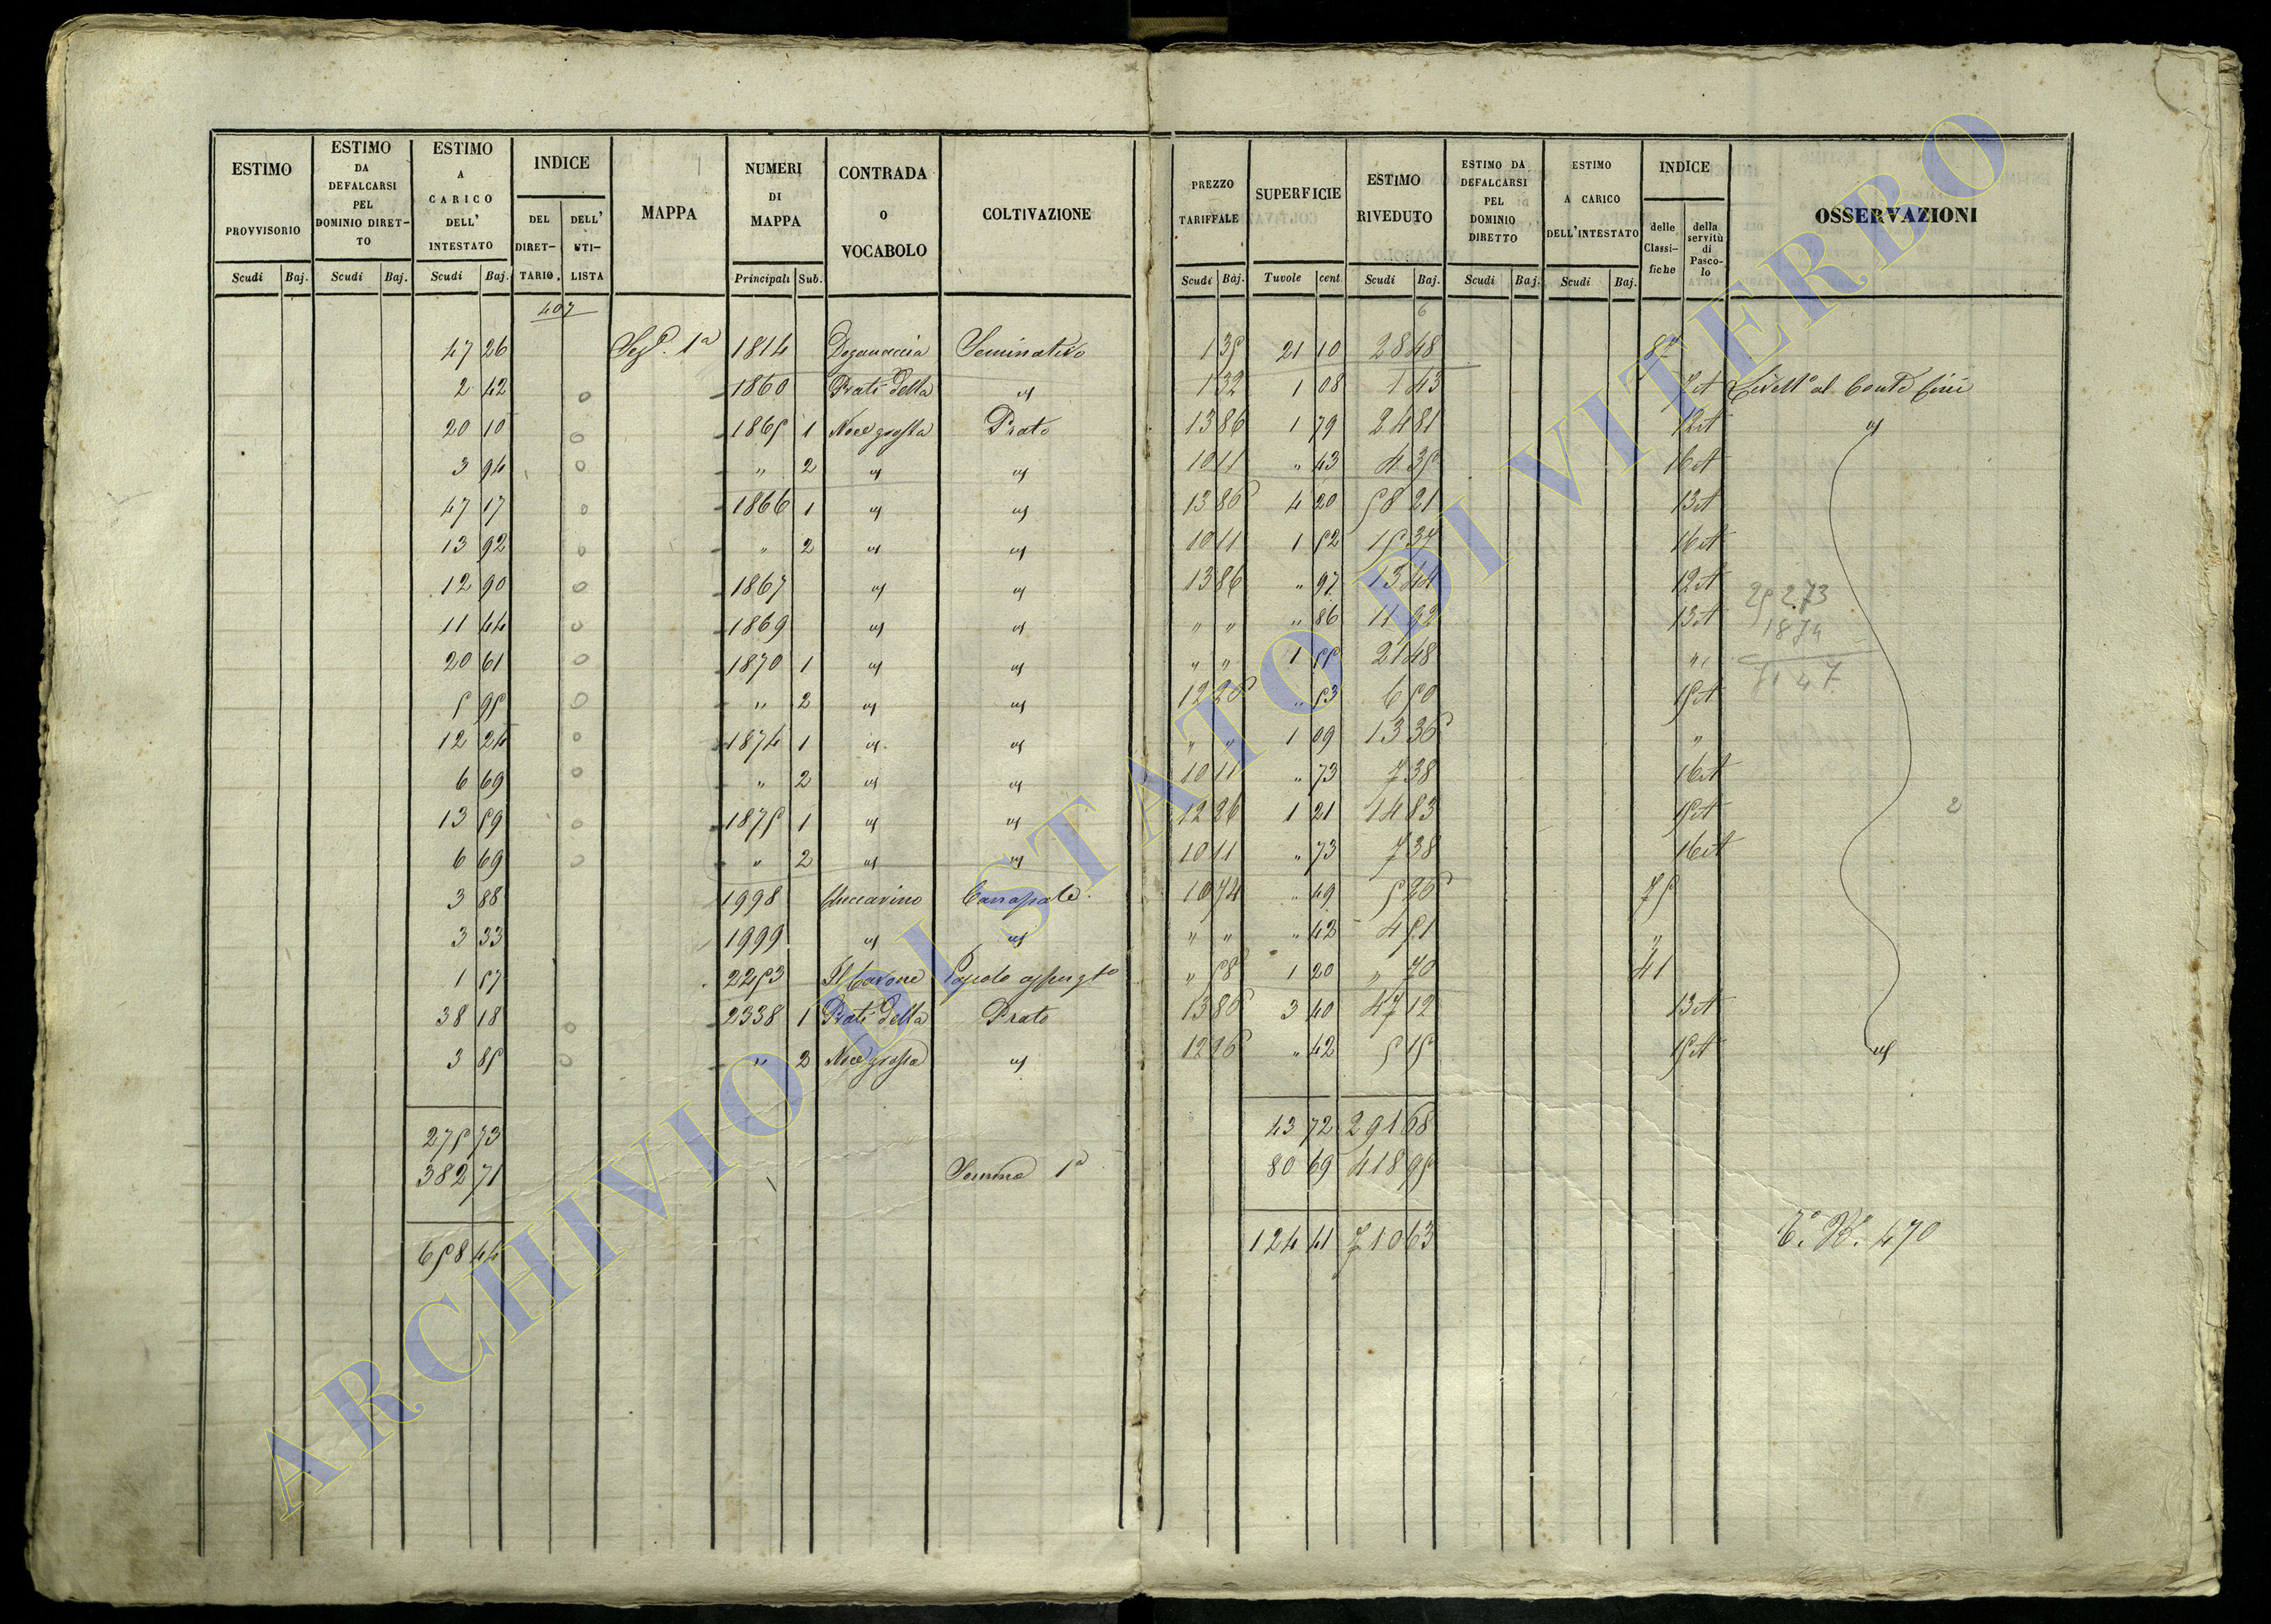 ESTIMO PROVVISORIO
ESTIMO DA DEFALCARSI PEL DOMINIO DIRET-TO
ESTIMO A CARICO DELL' INTESTATO
INDICE
DEL DIRET-TARIO.
DELL' UTI-LISTA
MAPPA
NUMERI DI MAPPA
CONTRADA O VOCABOLO
COLTIVAZIONE
PREZZO TARIFFALE
SUPERFICIE
ESTIMO RIVEDUTO
ESTIMO DA DEFALCARSI PEL DOMINIO DIRETTO
ESTIMO A CARICO DELL'INTESTATO
INDICE
delle Classi-fiche
della servitù di Pasco-lo
OSSERVAZIONI
Scudi Baj. Scudi Baj. Scudi Baj. Principali Sub. Scudi Baj. Tavole cent. Scudi Baj. Scudi Baj. Scudi Baj.
407
47 26 1ª 1814 Doganaccia Seminativo 1 35 21 10 28 48 87
2 42 0 1860 Prati della " 1 32 1 08 1 43 7A al Conte
20 10 0 1865 1 Noce grossa Prato 13 86 1 79 24 81 12A "
3 94 0 " 2 " " 10 11 " 43 4 35 16A
47 17 0 1866 1 " " 13 86 4 20 58 21 13A
13 92 0 " 2 " " 10 11 1 52 15 37 16A
12 90 0 1867 " " 13 86 " 97 13 44 12A
11 44 0 1869 " " " " " 86 11 92 13A
20 61 0 1870 1 " " " " 1 55 21 48 "
5 95 0 " 2 " " 12 26 " 53 6 50 15A
12 24 0 1874 1 " " " " 1 09 13 36 "
6 69 0 " 2 " " 10 11 " 73 7 38 16A
13 59 0 1875 1 " " 12 26 1 21 14 83 15A
6 69 0 " 2 " " 10 11 " 73 7 38 16A
3 88 1998 Canapule 10 74 " 49 5 26 75
3 33 1999 " " " " " 42 4 51 "
1 57 2253 Il Cavone " 58 1 20 " 70 41
38 18 0 2338 1 Prati della Prato 13 86 3 40 47 12 13A
3 85 0 " 2 Noce grossa " 12 26 " 42 5 15 15A "
275 73 43 72 291 68
382 71 Somma 1ª 80 69 418 95
658 44 124 41 710 63
470
ARCHIVIO DI STATO DI VITERBO